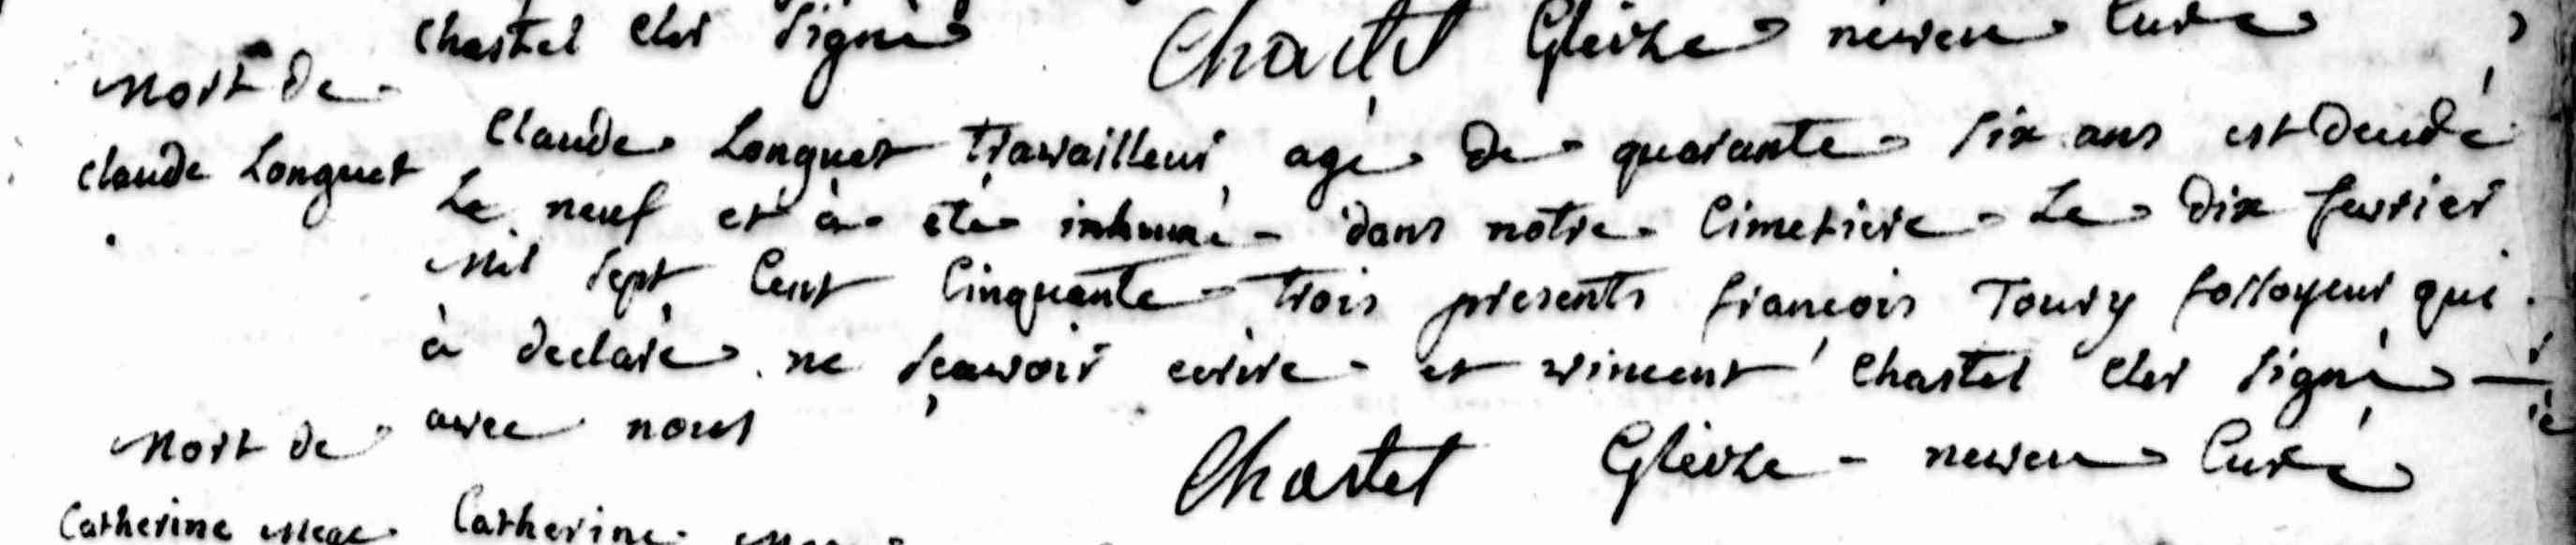 chastel cler signé Chastel Gleize neveu Curé
Mort de
claude Longuet
Claude Longuet travailleur agé de quarante six ans est decedé
Le neuf et à eté inhumé dans notre Cimetiere Le dix fevrier
mil sept Cent Cinquante trois presents françois Toury fossoyeur qui
à declaré ne sçavoir ecrire et vincent chastel cler signé
avec nous
Chastel Gleize neveu Curé
Mort de
Catherine Mege Catherine